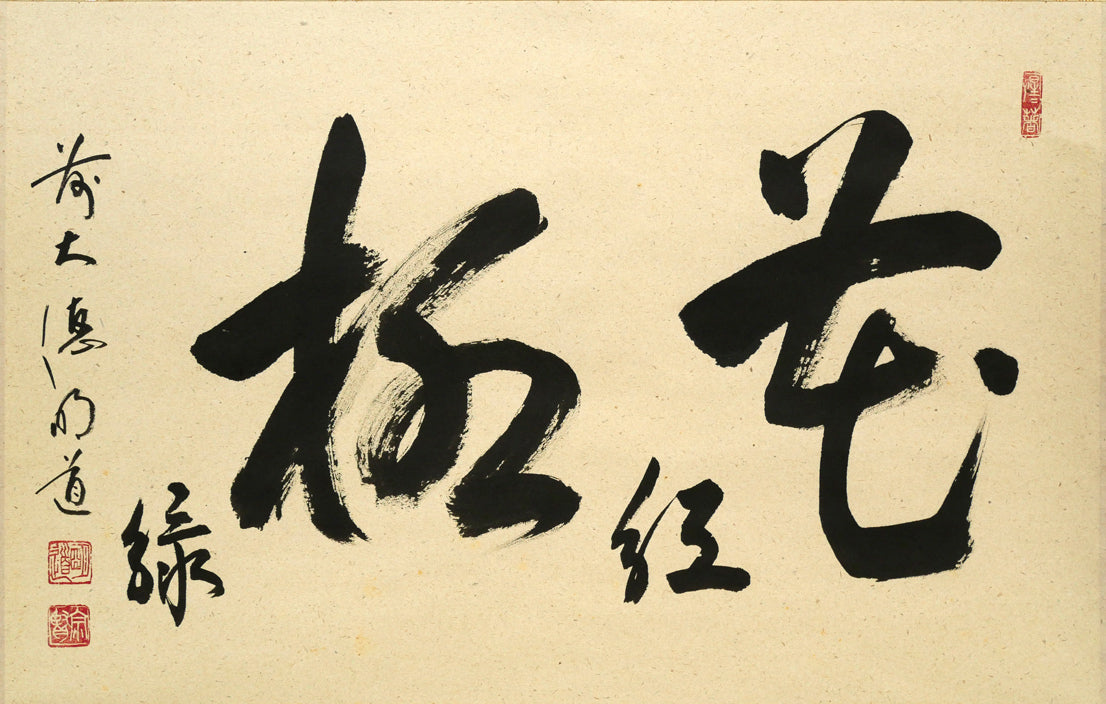 花
紅
柳
緑
前大徳明道
明道